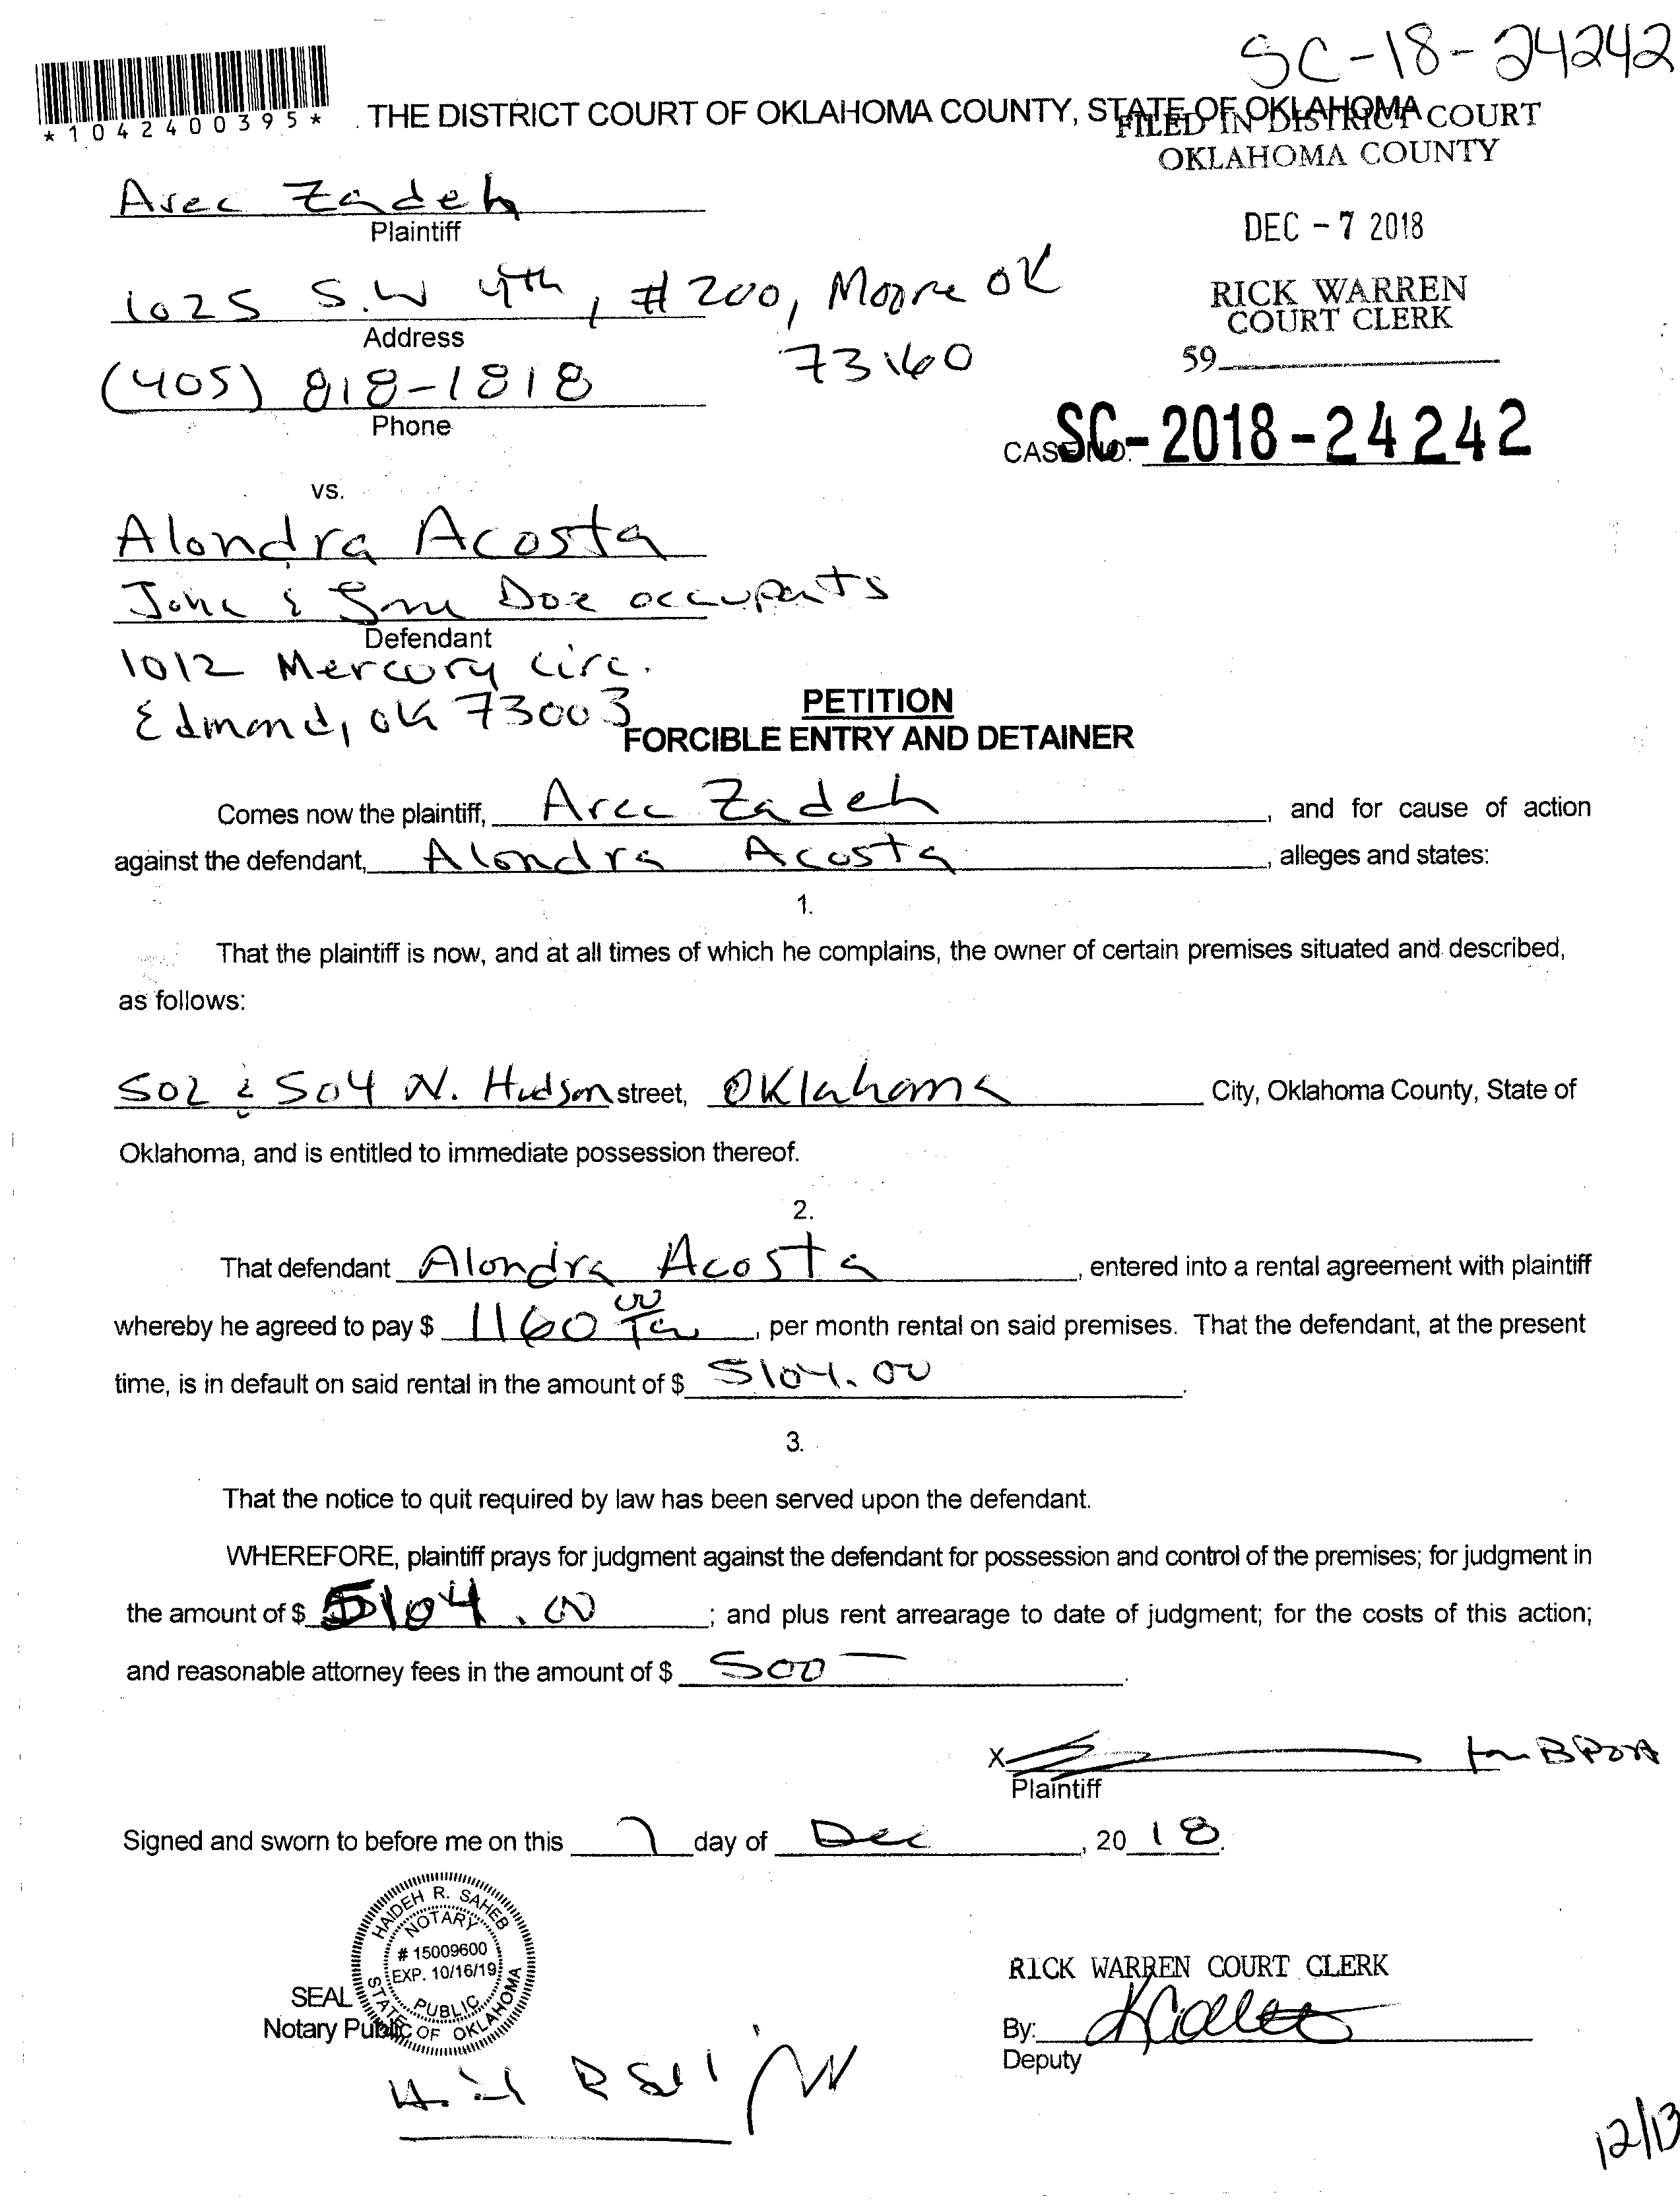 SC-18-24242
*1042400395*
THE DISTRICT COURT OF OKLAHOMA COUNTY, STATE OF OKLAHOMA
FILED IN DISTRICT COURT
OKLAHOMA COUNTY
Arec Zadeh
Plaintiff
DEC - 7 2018
1025 S.W 4th, #200, Moore OK
73160
Address
RICK WARREN
COURT CLERK
59
(405) 818-1818
Phone
CASE NO. SC-2018-24242
vs.
Alondra Acosta
John & Doe occupants
Defendant
1012 Mercury Circ.
Edmond, OK 73003
PETITION
FORCIBLE ENTRY AND DETAINER
Comes now the plaintiff, Arec Zadeh, and for cause of action
against the defendant, Alondra Acosta, alleges and states:
1.
That the plaintiff is now, and at all times of which he complains, the owner of certain premises situated and described,
as follows:
502 & 504 N. Hudson street, Oklahoma City, Oklahoma County, State of
Oklahoma, and is entitled to immediate possession thereof.
2.
That defendant Alondra Acosta, entered into a rental agreement with plaintiff
whereby he agreed to pay $ 1160 00, per month rental on said premises. That the defendant, at the present
time, is in default on said rental in the amount of $ 5104.00.
3.
That the notice to quit required by law has been served upon the defendant.
WHEREFORE, plaintiff prays for judgment against the defendant for possession and control of the premises; for judgment in
the amount of $ 5104.00; and plus rent arrearage to date of judgment; for the costs of this action;
and reasonable attorney fees in the amount of $ 500 —.
X
Plaintiff
Signed and sworn to before me on this 7 day of Dec, 20 18.
HAIDEH R. SAHEB
NOTARY
# 15009600
EXP. 10/16/19
PUBLIC
STATE OF OKLAHOMA
SEAL
Notary Public
RICK WARREN COURT CLERK
By:
Deputy
12/13